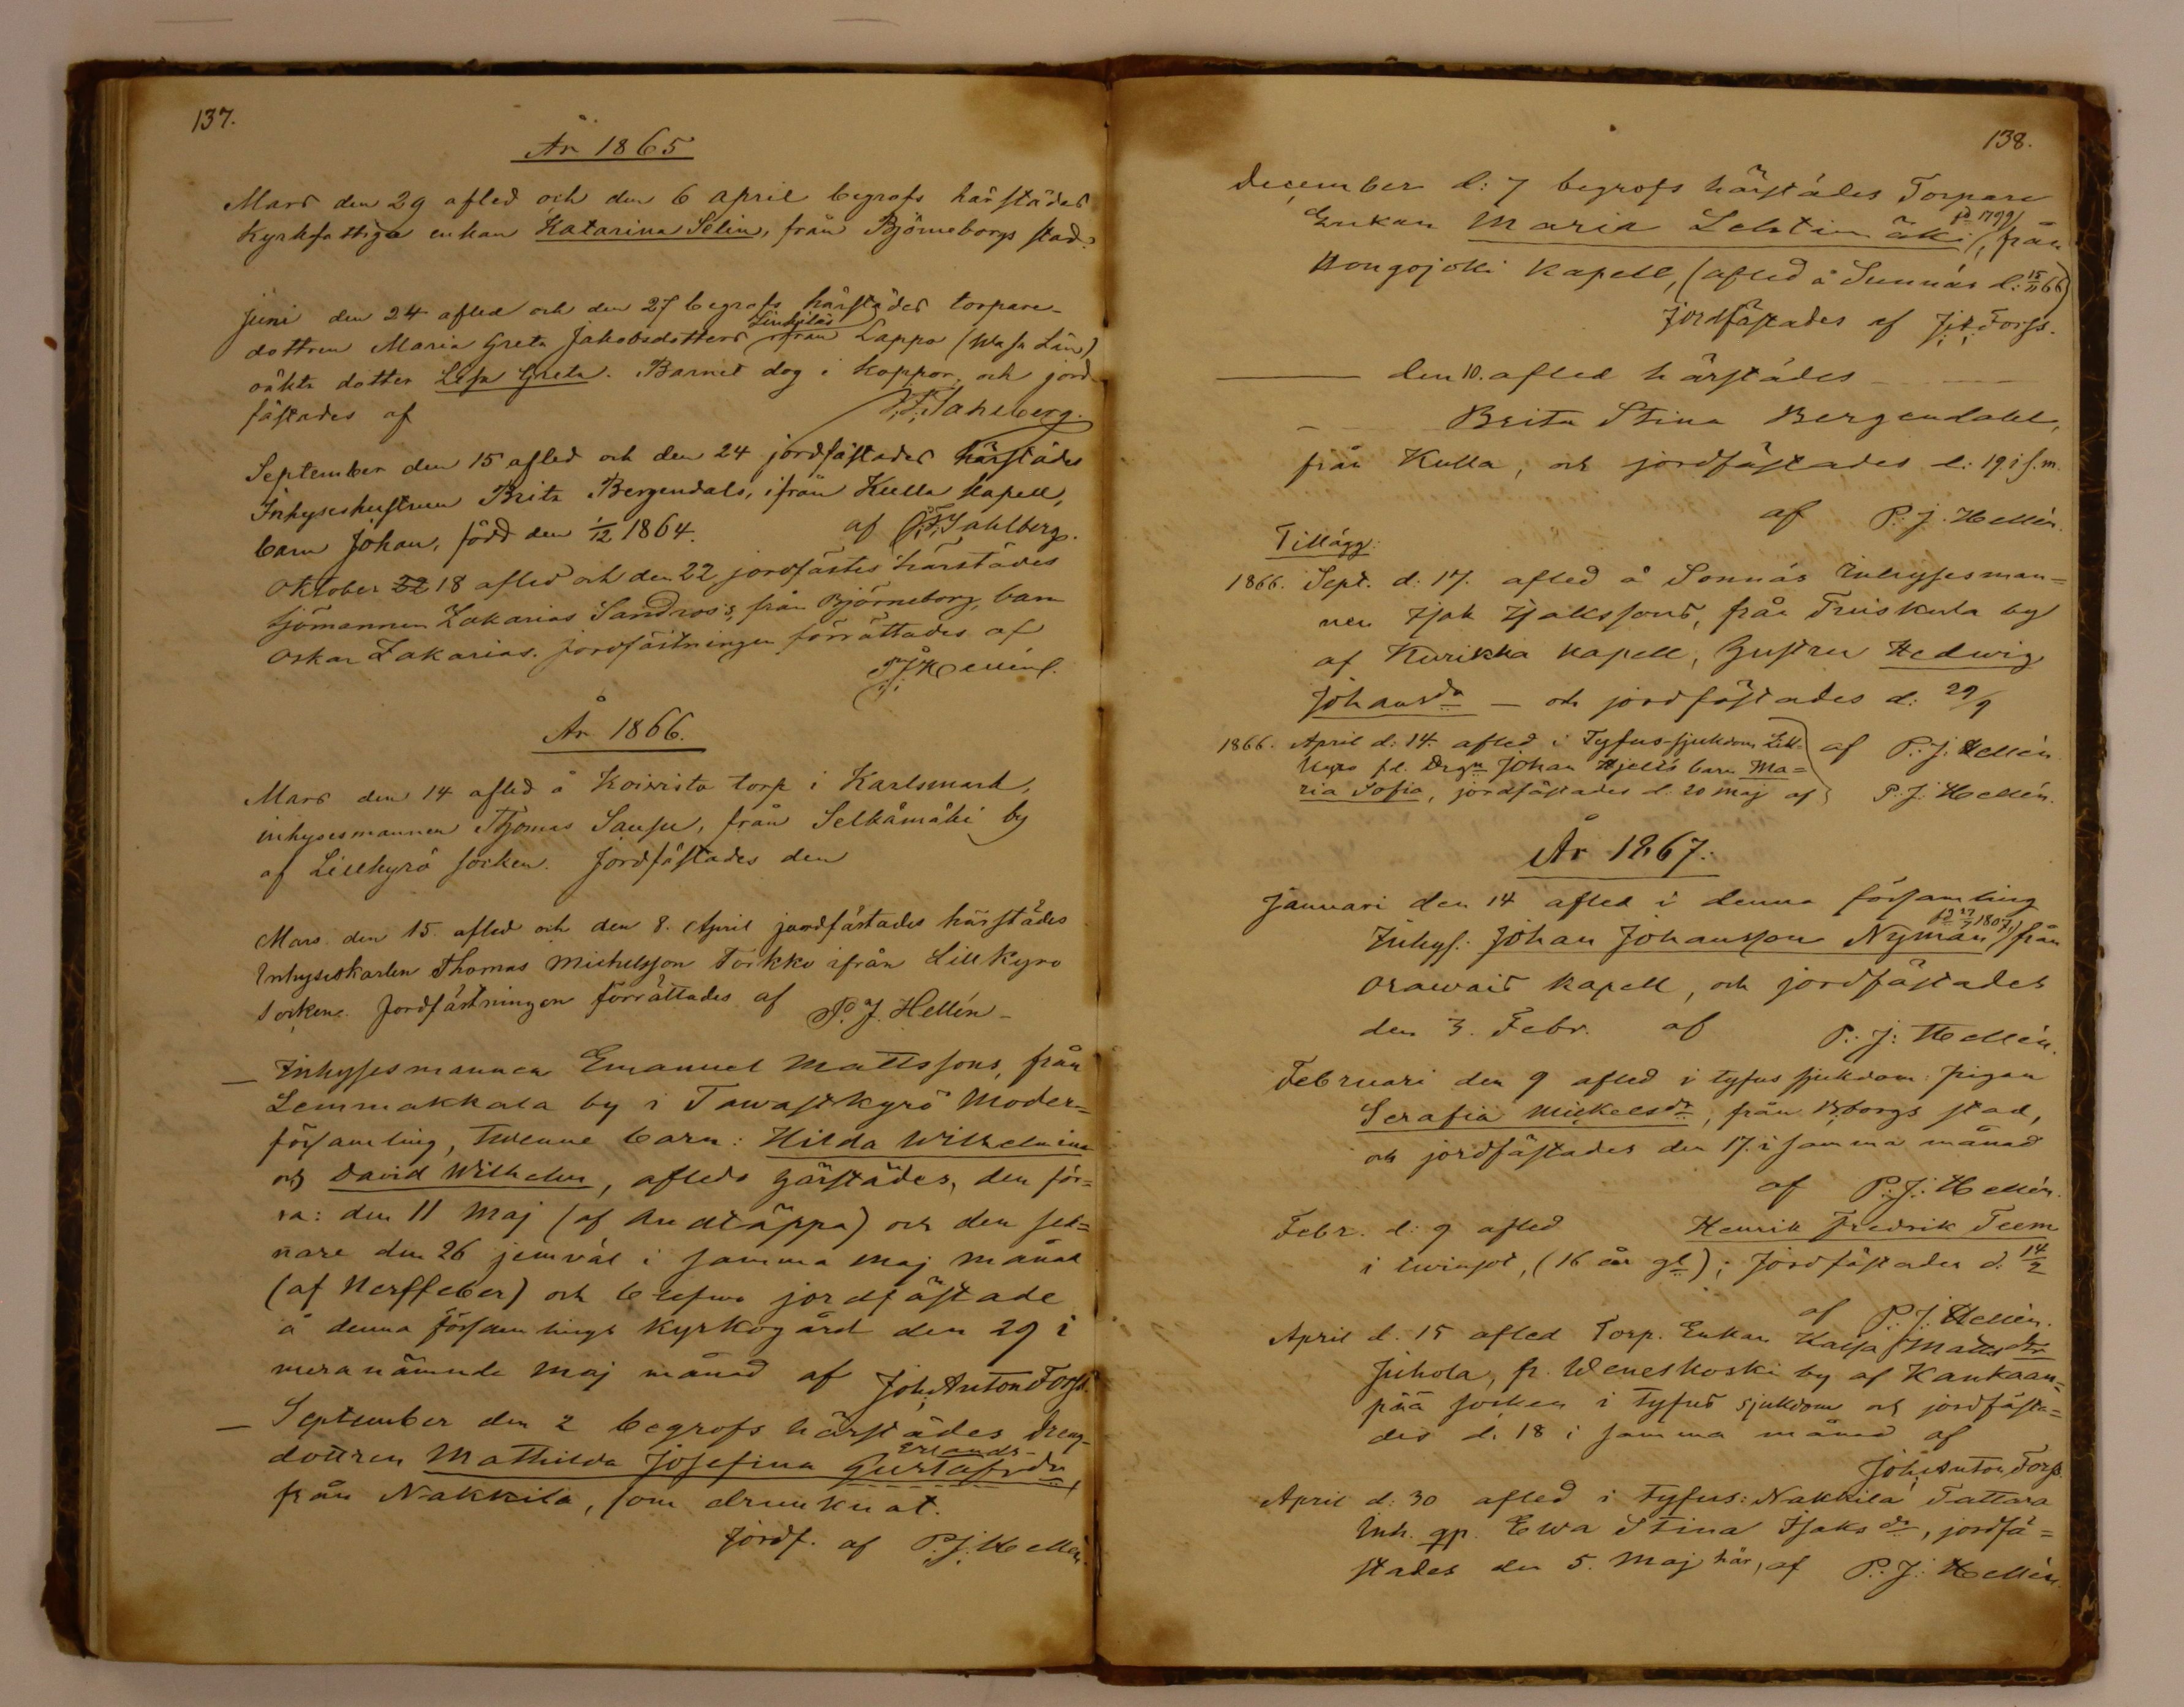 137.
År 1865
Mars den 29 afled och den 6 April begrofs härstädes
Kyrkfattiga enkan Katarina Selin, från Björneborgs stad.
Juni den 24 afled och den 27 begrofs härstädes torpare-
dottren Maria Greta Jakobsdotters från Lappo (Wasa Län)
oäkta dotter Lisa Greta. Barnet dog i koppor, och jord-
fästades af
September den 15 afled och den 24 jordfästades härstädes
Inhyseshustrun Brita Bergendals, ifrån Kulla Kapell,
barn Johan, född den 1/12 1864. af F. Sahlberg.
Oktober 22 18 afled och den 22 jordfästes härstädes
sjömannen Zakarias Sandros's, från Björneborg, barn
Oskar Zakarias. Jordfästningen förrättades af
P. J. Hellén.
År 1866.
Mars den 14 afled å Koivisto torp i Karlsmark,
inhysesmannen Thomas Saupu, från Selkämäki by
af Lillkyrö socken. Jordfästades den
Mars den 15. afled och den 8. April jordfästades härstädes
Inhyseskarlen Thomas Michelsson Torkko ifrån Lill Kyro
socken. Jordfästningen förrättades af P. J. Hellén
— Inhysesmannen Emanuel Mattssons, från
Lemmakkala by i Tawastkyrö Moder=
församling, twenne barn: Hilda Wilhelmina
och David Wilhelm, afledo härstädes, den för=
ra: den 11 Maj (af Andtäppa) och den sed=
nare den 26 jemväl i samma Maj månad
(af Nerffeber) och blefwo jordfästade
å denna församlings kyrkogård den 29 i
meranämnde Maj månad af Joh. Anton Forss.
— September den 2 begrofs härstädes dreng-
Erlands-
dottren Mathilda Josefina Gustafsdr
från Nakkila, som drunknat.
Jordf. af P. J. Hellén.
138.
December d: 7 begrofs härstädes Torpare
Enkan Maria Lehtimäki (fd 1799), från
Hongojoki Kapell, (afled å Sunnäs d: 15/11 66)
Jordfästades af J. A. Forss.
— den 10. afled härstädes
Brita Stina Bergendahl,
från Kulla, och jordfästades d: 19 i s.m.
af P. J. Hellén.
Tillägg:
1866. Sept. d: 17. afled å Sonnäs Inhysesman=
nen Isak Isakssons, från by
af Kurikka kapell, hustru Hedwig
Johansdr — och jordfästades d: 29/9
1866. April d: 14. afled i Tyfus-sjukdom af P. J. Hellén
fd. Johan Hjelts barn Ma=
ria Sofia, jordfästades d. 20 Maj af P. J. Hellén.
År 1867.
Januari den 14 afled i denna församling
Inhys: Johan Johansson Nyman (fd 17/7 1807) från
Orawais kapell, och jordfästades
den 3. Febr. af P. J. Hellén.
Februari den 9 afled i tyfus sjukdom: pigan
Serafia Mickelsdr, från B:borgs stad,
och jordfästades den 17. i samma månad
af P. J. Hellén.
Febr. d: 9 afled Henrik Fredrik Teem
i twinsot, (16 år gl); Jordfästades d. 14/2
af P. J. Hellén.
April d. 15 afled Torp. Enkan Kaisa Mattsdr
Juhola, fr. Weneskoski by af Kankaan=
pää socken i tyfus sjukdom och jordfästa=
des d. 18 i samma månad af
Joh. Anton Forss.
April d: 30 afled i Tyfus: Nakkila Tattara
Inh. gp. Ewa Stina Isaksdr, jordfä=
stades den 5. Maj här, af P. J. Hellén.